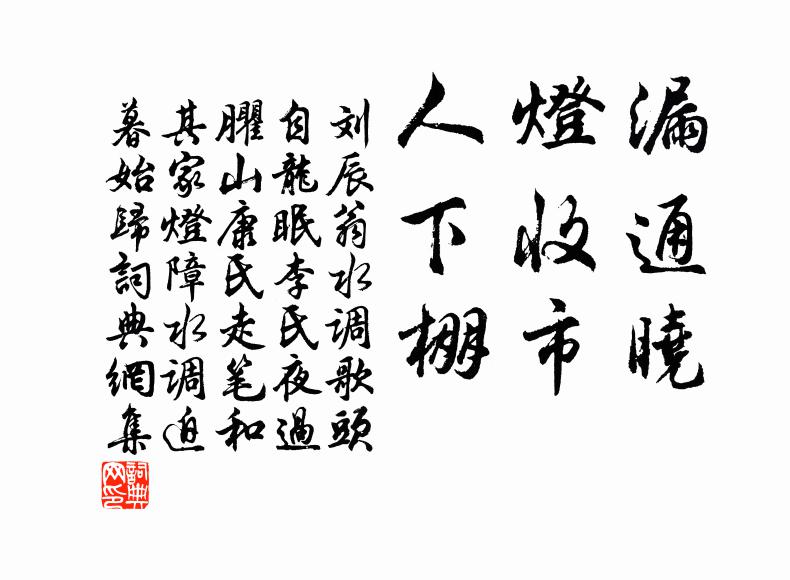 漏通曉
燈收市
人下棚
刘辰翁水调歌頭
自龍眠李氏夜過
臞山康氏走笔和
其家燈障水调迫
暮始歸詞典網集